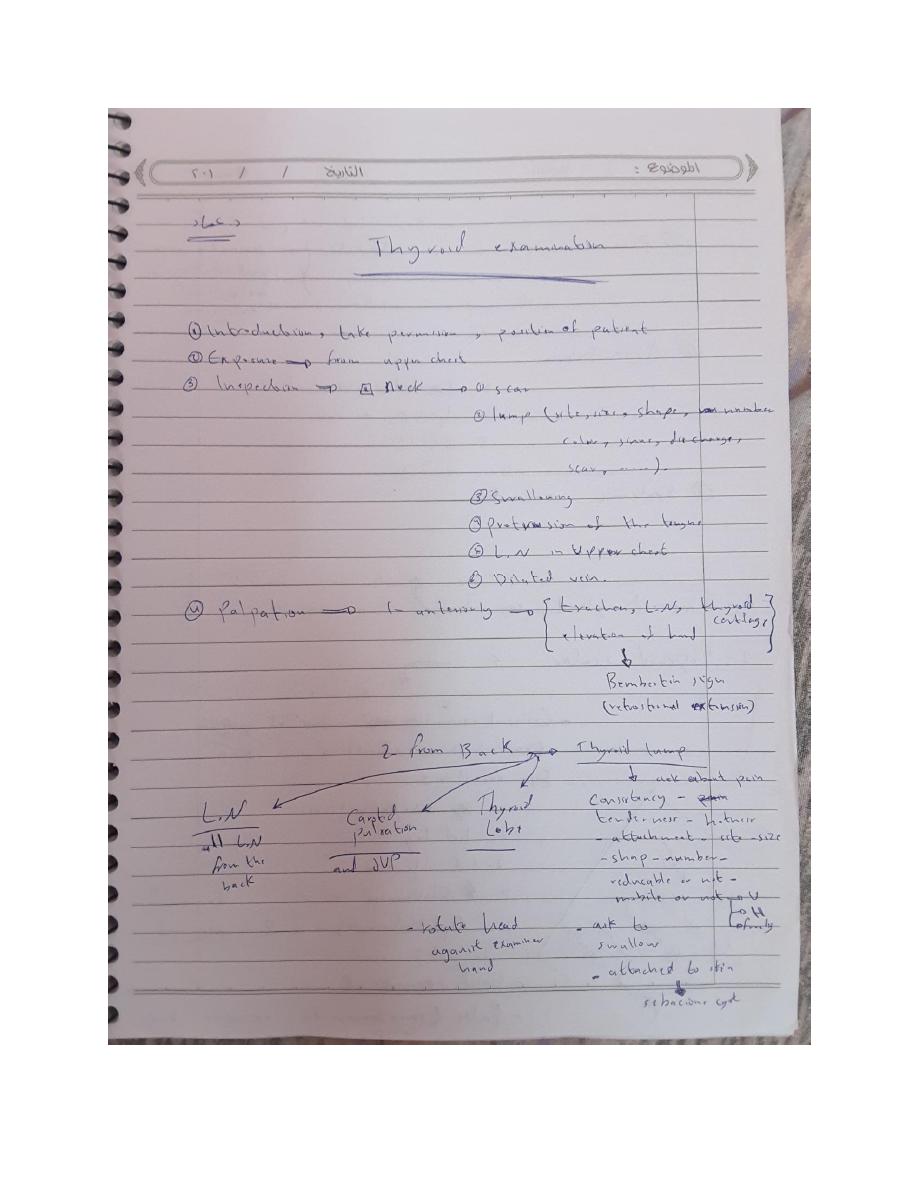 الموضوع : التاريخ / / ٢٠١
د. عماد
Thyroid examination
① Introduction, take permission, position of patient
② Exposure ⇒ from upper chest
③ Inspection ⇒ a Neck → ① scar
② lump (site, size, shape, number
color, sinus, discharge,
scar, ......).
③ Swallowing
④ Protrusion of the tongue
⑤ L.N in Upper chest
⑥ Dilated vein.
④ Palpation ⇒ 1- anteriorly → { trachea, L.N, thyroid cartilage
elevation of hand }
↓
Bembertin sign
(retrosternal extension)
2- from Back → Thyroid lump
↓ ask about pain
L.N
all L.N
from the
back
Carotid
pulsation
and JVP
Thyroid
Lobe
Consistancy -
tenderness - hotness
- attachment - site - size
- shap - number -
reducable or not -
mobile or not → V
→ H
- rotate head
against examiner
hand
- ask to
swallow
- attached to skin
↓
sebacious cyst